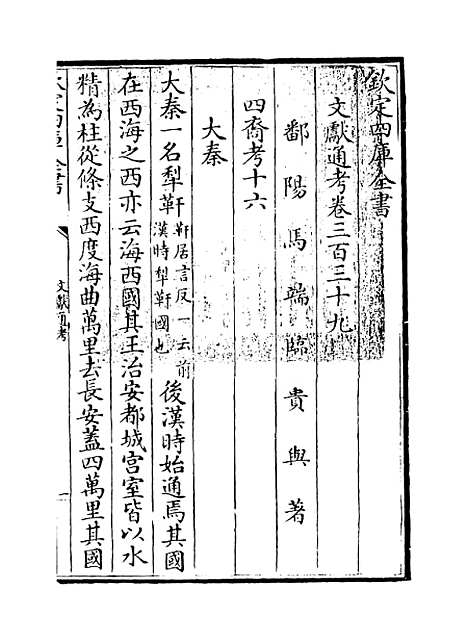 欽定四庫全書
文獻通考卷三百三十九
鄱陽馬端臨貴與著
四裔考十六
大秦
大秦一名犁靬靬居言反一云前漢時犁靬國也後漢時始通焉其國
在西海之西亦云海西國其王治安都城宮室皆以水
精為柱從條支西度海曲萬里去長安蓋四萬里其國
欽定四庫全書
文獻通考
一